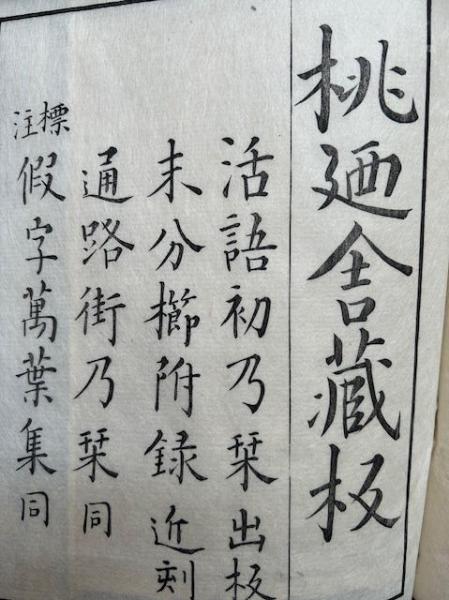 桃廼舎藏板
活語初乃栞出板
末分櫛附録近刻
通路街乃栞同
標注假字萬葉集同